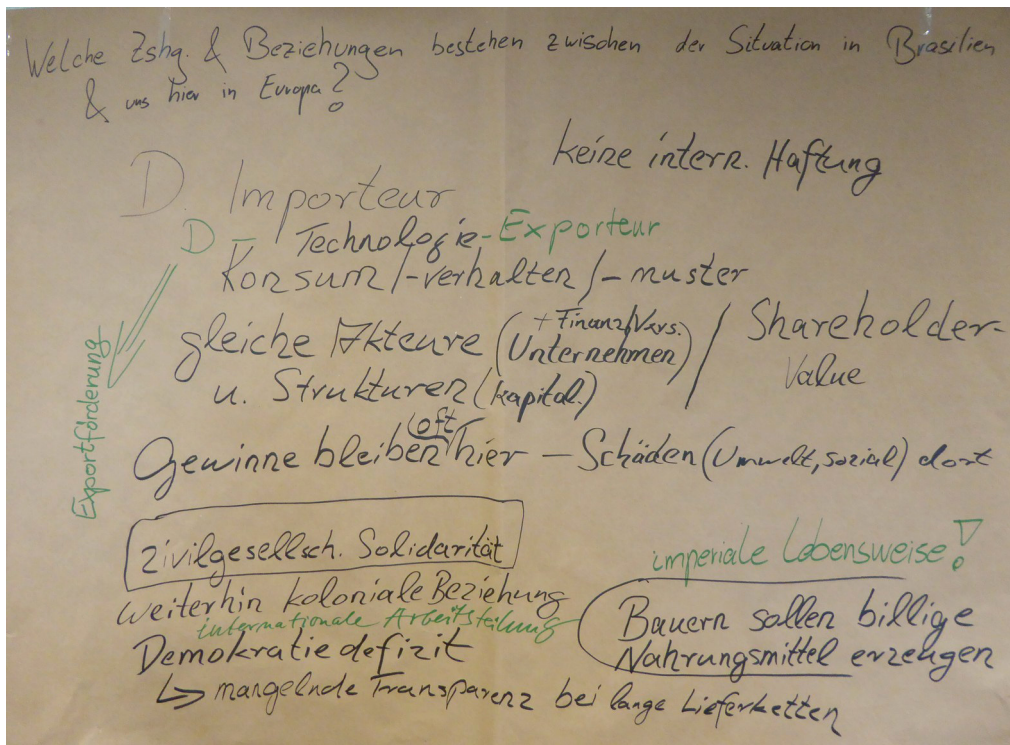 Welche Zshg. & Beziehungen bestehen zwischen der Situation in Brasilien
& uns hier in Europa?
keine intern. Haftung
D. Importeur
D – Technologie-Exporteur
Konsum/-verhalten/-muster
gleiche Akteure (Unternehmen) + Finanz/Vers.
u. Strukturen (kapital.)
/ Shareholder-
Value
Exportförderung
Gewinne bleiben (oft) hier – Schäden (Umwelt, sozial) dort
zivilgesellsch. Solidarität
imperiale Lebensweise!
weiterhin koloniale Beziehung
internationale Arbeitsteilung
Bauern sollen billige
Nahrungsmittel erzeugen
Demokratiedefizit
↳ mangelnde Transparenz bei lange Lieferketten